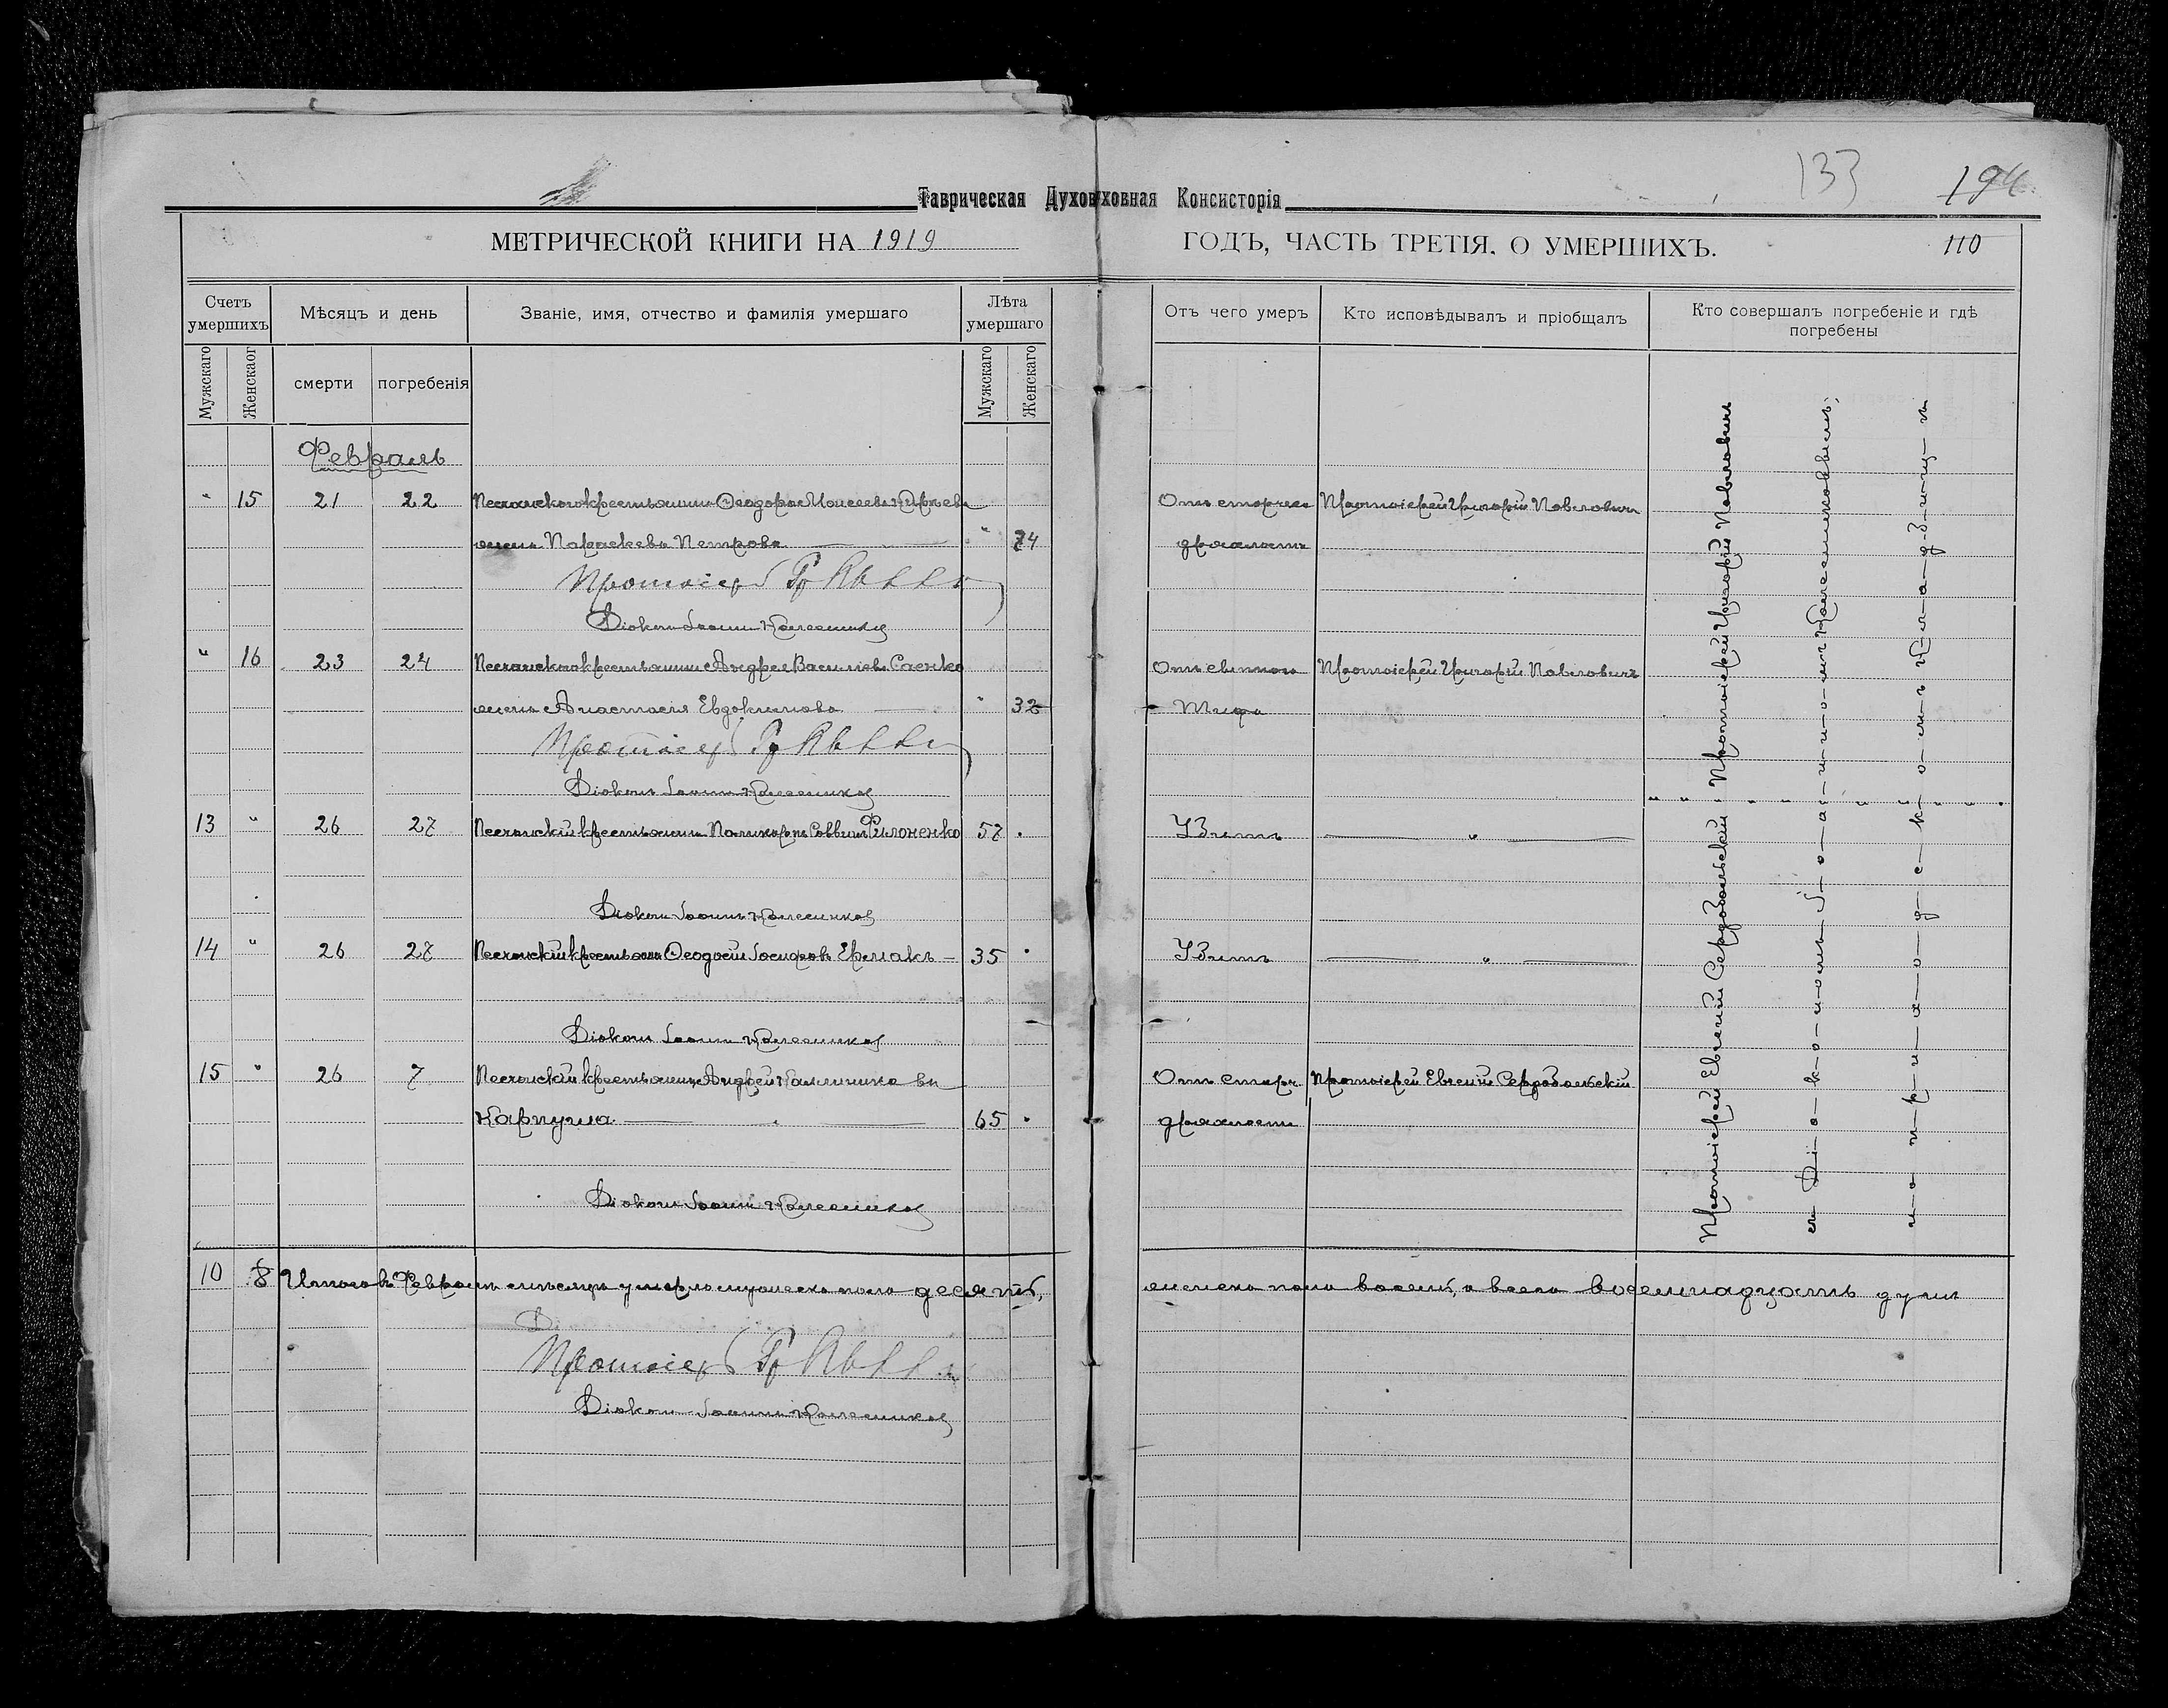 133
194
Таврическая Духов ховная Консисторія
МЕТРИЧЕСКОЙ КНИГИ НА 1919
ГОДЪ, ЧАСТЬ ТРЕТІЯ. О УМЕРШИХЪ.
110
Счетъ умершихъ
Мѣсяцъ и день
Званіе, имя, отчество и фамилія умершаго
Лѣта умершаго
Отъ чего умеръ
Кто исповѣдывалъ и пріобщалъ
Кто совершалъ погребеніе и гдѣ погребены
Мужскаго
Женскаог
смерти
погребенія
Мужскаго
Женскаго
Февраль
" 15 21 22 Песчанскаго крестьянина Ѳеодора Моисеева
Отъ старчес Протоіерей Григорій Павловичъ
жена Параскева Петрова " 74
дряхлости
Протоіерей Гр
Діаконъ Іоаннъ Колесников
" 16 23 24 Песчанскаго крестьянина Андрея Васильева Саенко
Отъ сыпного Протоіерей Григорій Павловичъ
жена Анастасія Евдокимова " 32
Тифа
Протоіерей Гр
Діаконъ Іоаннъ Колесников
13 " 26 27 Песчанскій крестьянинъ Поликарпъ Саввинъ Филоненко 57
Убитъ "
Діаконъ Іоаннъ Колесников
14 " 26 27 Песчанскій крестьян Ѳеодосій Іосифовъ Ермакъ 35
Убитъ "
Діаконъ Іоаннъ Колесников
15 " 26 7 Песчанскій крестьянинъ Андрей Калинников
Отъ старч Протоіерей Евгеній Сердобольскій
Карпуша 65
дряхлости
Діаконъ Іоаннъ Колесников
Протоіерей Евгеній Сердобольскій " Протоіерей Григорій Павловичъ
съ Діакономъ Іоанномъ Колесниковымъ,
на приходскомъ кладбищѣ
10 8 Итого въ Февралѣ мѣсяцѣ умерло мужеска пола десять,
женска пола восемь, а всего восемнадцать душъ
Протоіерей Гр
Діаконъ Іоаннъ Колесников